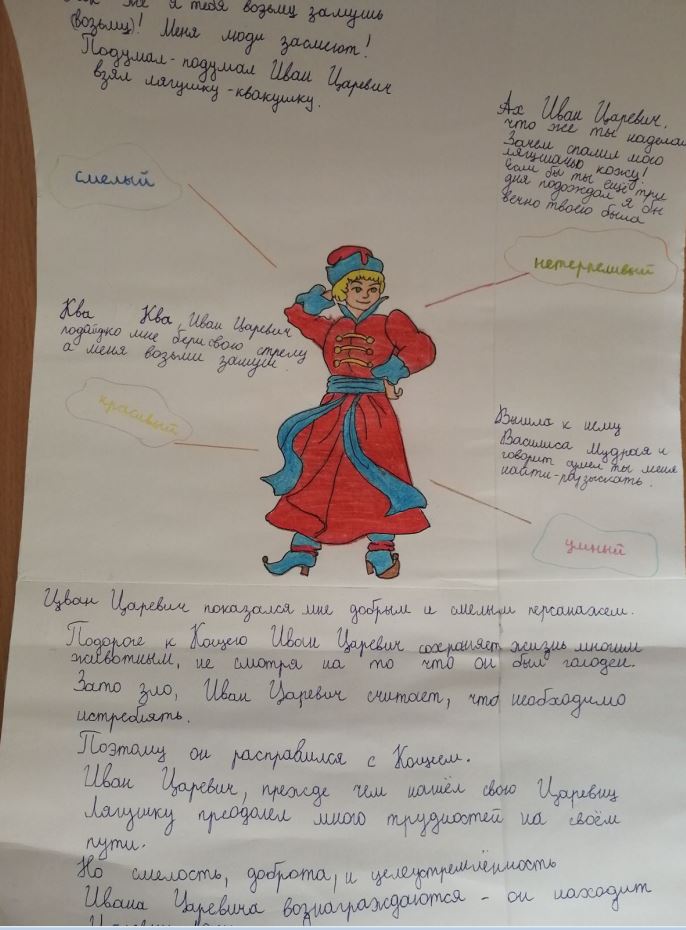 же я тебя возьму замушь
(возьму)! Меня люди засмеют!
Подумал-подумал Иван Царевич
взял лягушку-квакушку.
Ах Иван Царевич,
что же ты наделал
Зачем спалил мою
лягушачью кожу!
Если бы ты ещё три
дня подождал я бы
вечно твоею была
смелый
нетерпеливый
Ква Ква, Иван Царевич
подойдко мне бери свою стрелу
а меня возьми замуш.
красивый
Вышла к нему
Василиса Мудрая и
говорит сумел ты меня
найти-разыскать.
умный
Иван Царевич показался мне добрым и смелым персанажем.
Подороге к Кощею Иван Царевич сохраняет жизнь многим
животным, не смотря на то что он был голоден.
Зато зло, Иван Царевич считает, что необходимо
истреблять.
Поэтому он расправился с Кощеем.
Иван Царевич, прежде чем нашёл свою Царевну
Лягушку преодолел много трудностей на своём
пути.
Но смелость, доброта, и целеустремлённость
Ивана Царевича вознаграждаются - он находит